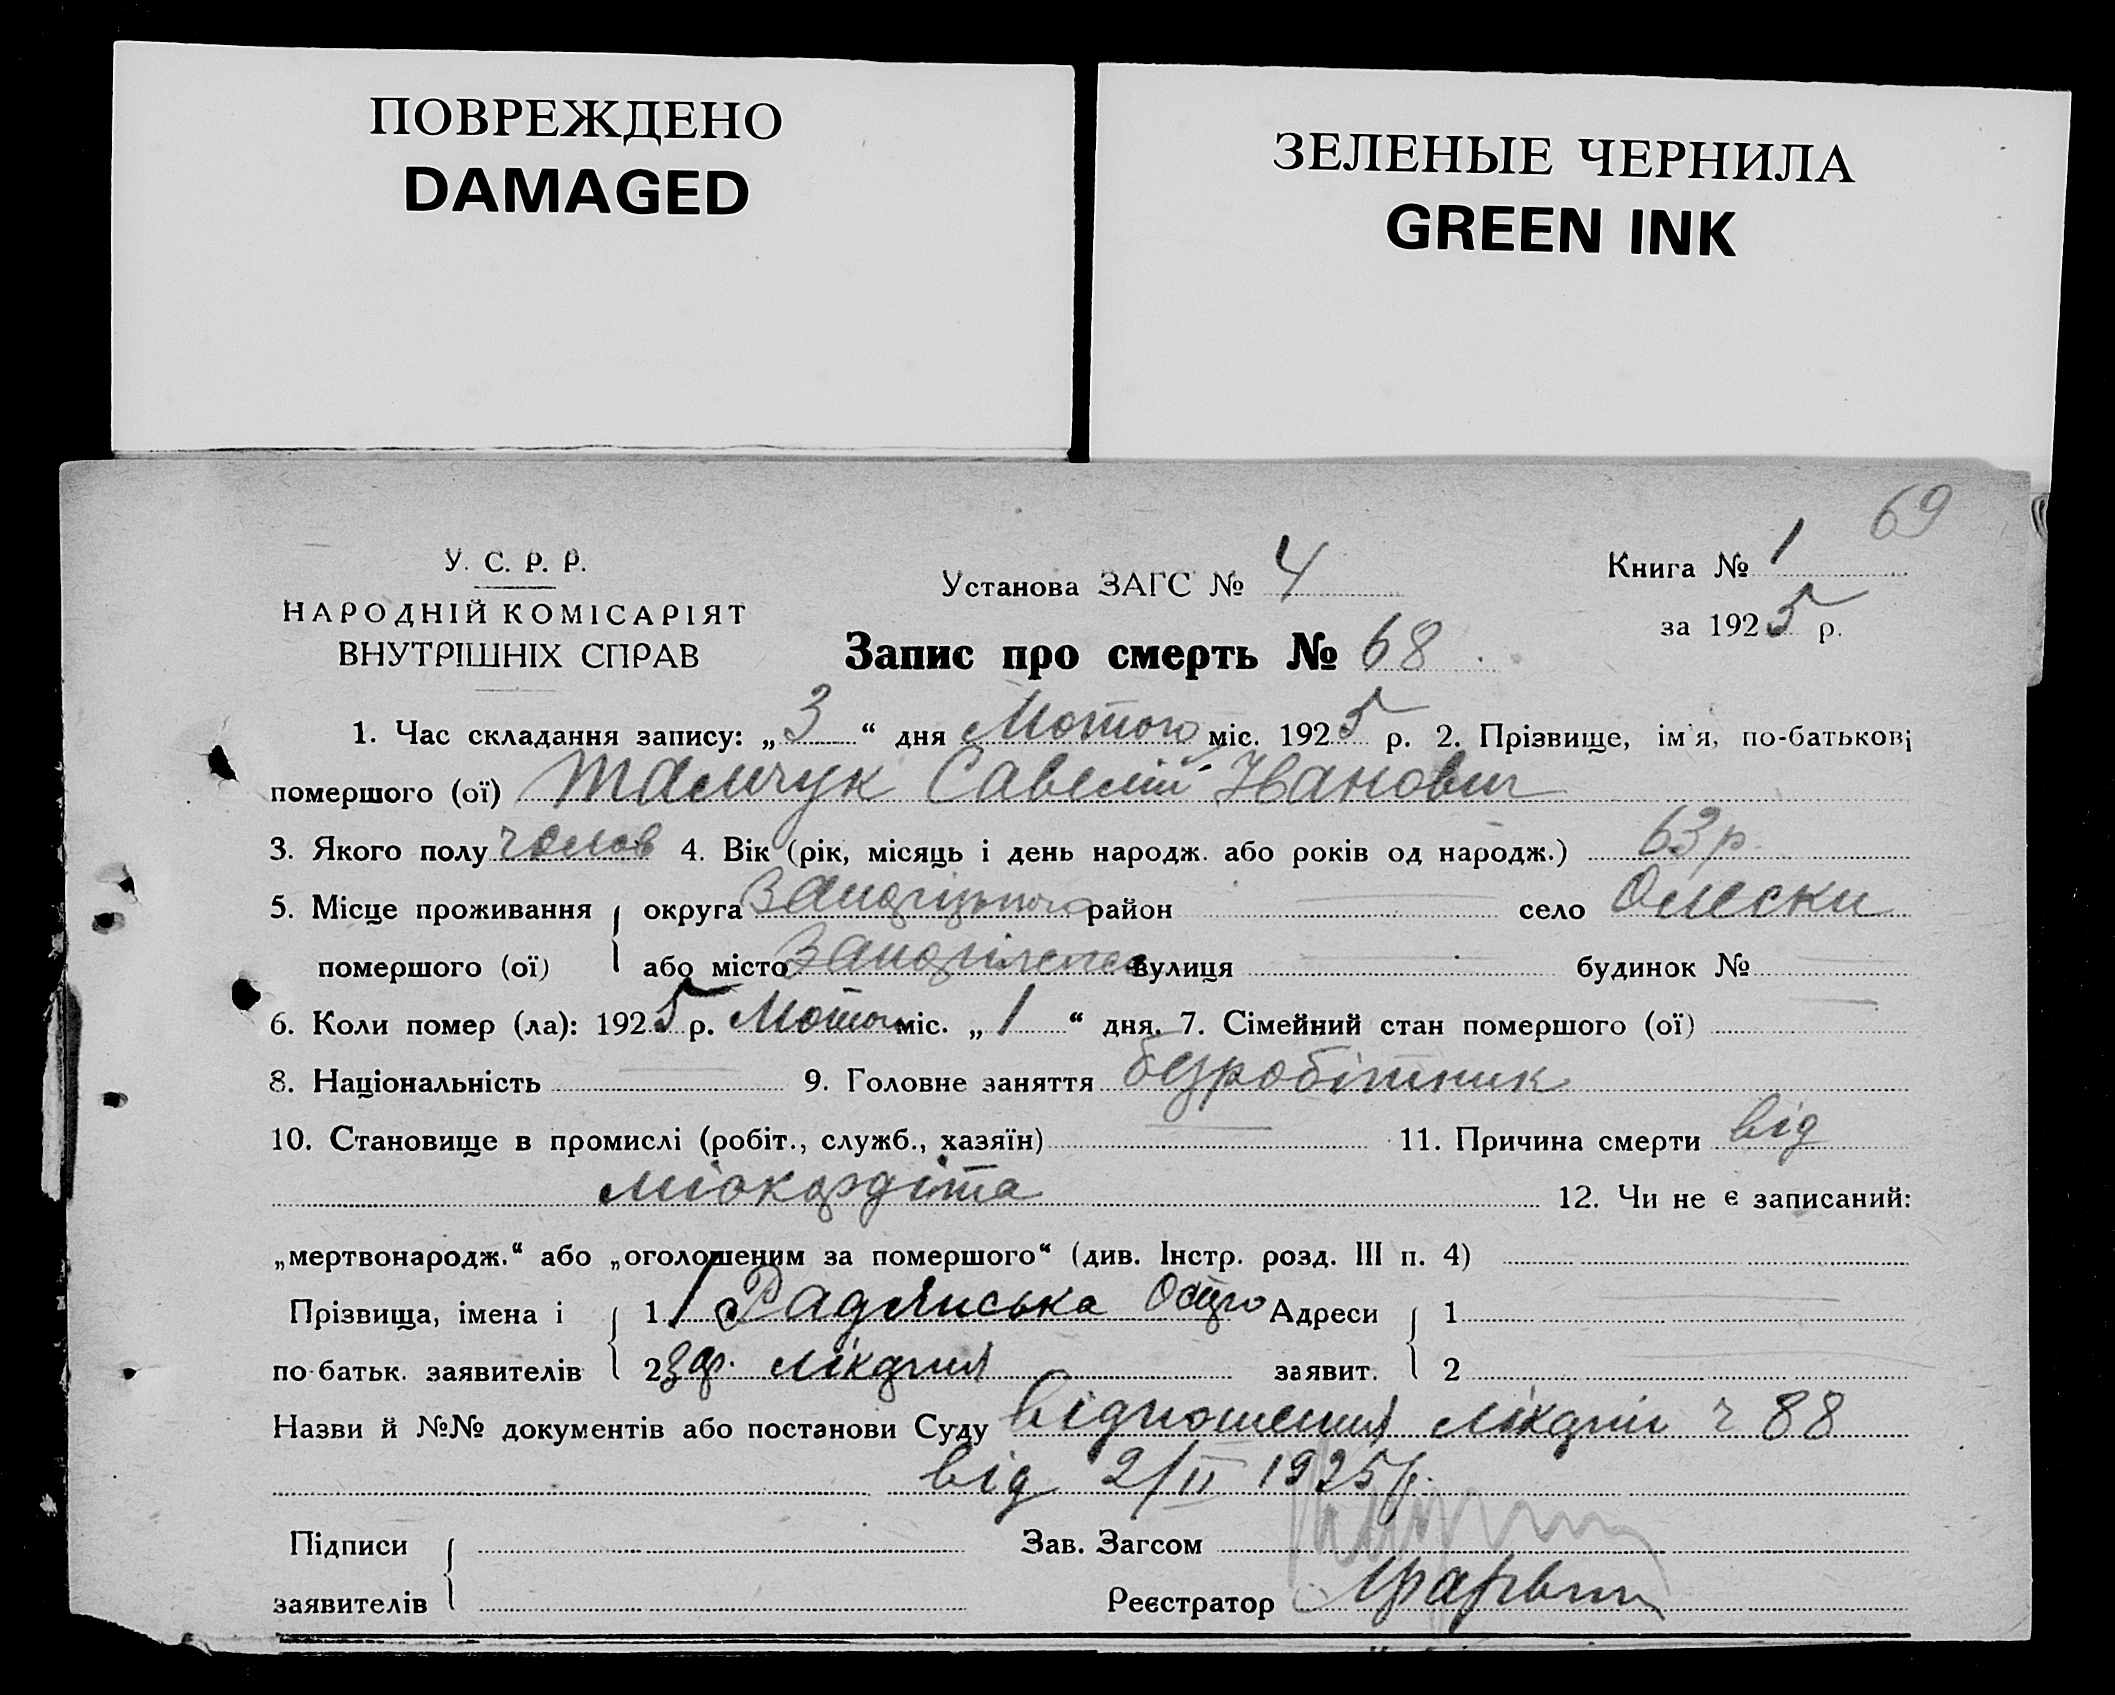 ПОВРЕЖДЕНО
DAMAGED
ЗЕЛЕНЫЕ ЧЕРНИЛА
GREEN INK
69
У. С. Р. Р.
НАРОДНІЙ КОМІСАРІЯТ
ВНУТРІШНІХ СПРАВ
Установа ЗАГС № 4
Книга № 1
за 1925 р.
Запис про смерть № 68
1. Час складання запису: „3“ дня Лютого міс. 1925 р. 2. Прізвище, ім'я, по-батькові
помершого (ої) Тамчук Савелій Іванович
3. Якого полу чолов 4. Вік (рік, місяць і день народж. або років од народж.) 63 р.
5. Місце проживання округа район село Олески
помершого (ої) або місто вулиця будинок №
6. Коли помер (ла): 1925 р. Лютого міс. „1“ дня. 7. Сімейний стан помершого (ої)
8. Національність 9. Головне заняття безробітник
10. Становище в промислі (робіт., служб., хазяїн) 11. Причина смерти від
міокардіта
12. Чи не є записаний:
„мертвонародж.“ або „оголошеним за помершого“ (див. Інстр. розд. III п. 4)
Прізвища, імена і 1 Радянська Адреси 1
по-батьк. заявителів 2 лікарня заявит. 2
Назви й №№ документів або постанови Суду відношення лікарні ч 88
від 2/II 1925 р.
Підписи Зав. Загсом
заявителів Реєстратор